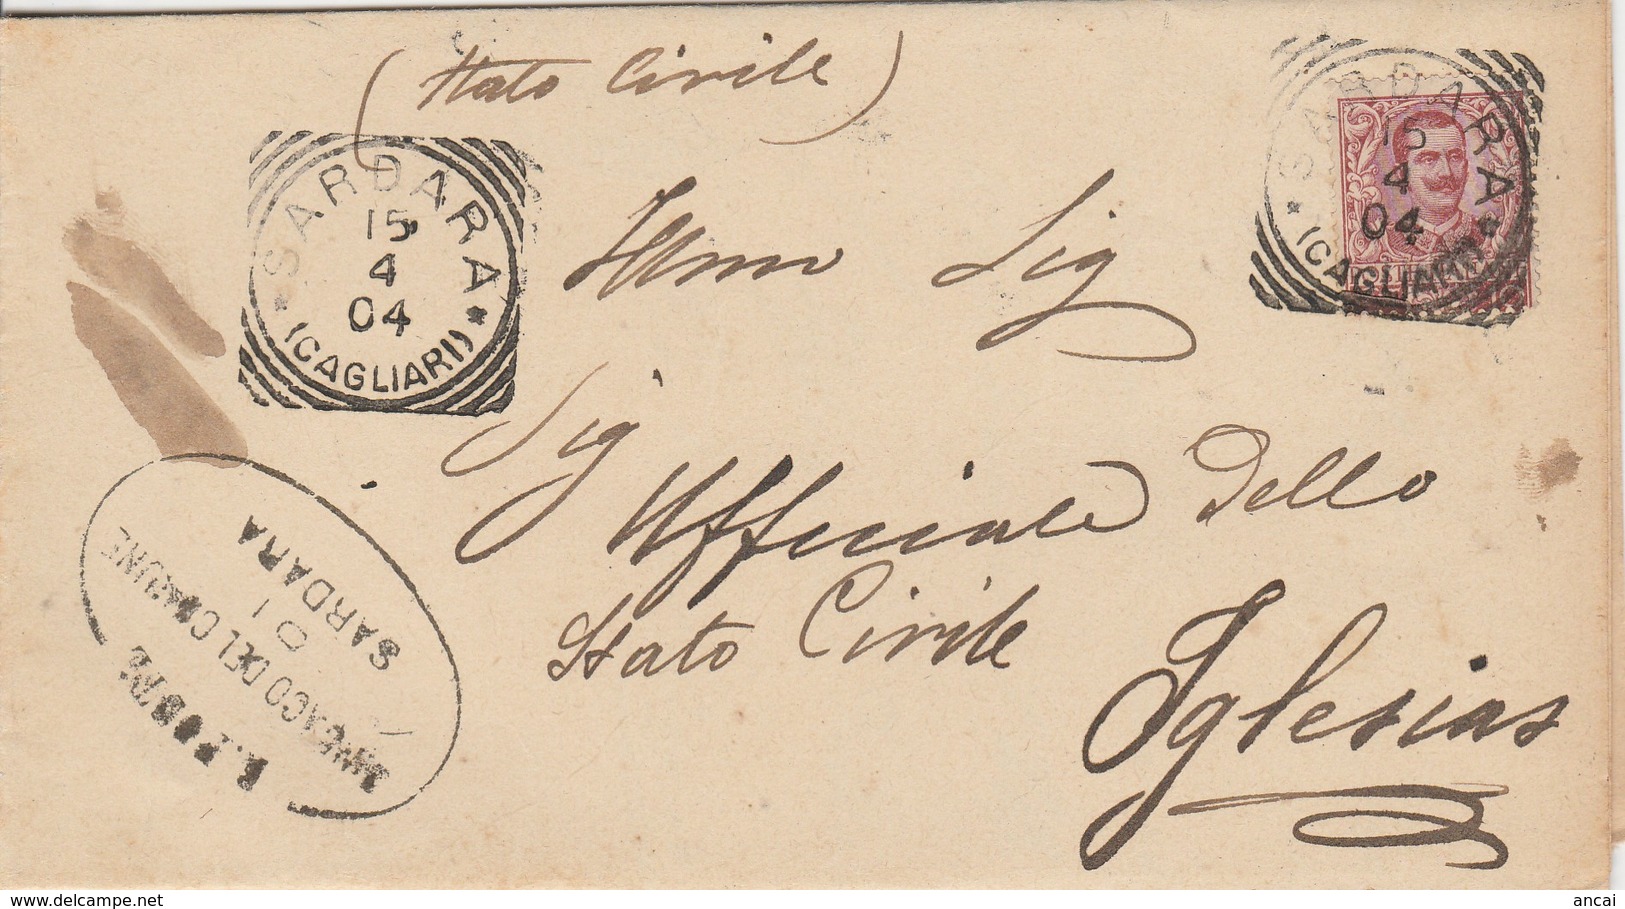 (Stato Civile)
SARDARA
15
4
04
(CAGLIARI)
SARDARA
15
4
04
(CAGLIARI)
Illmo Sig
Sig Ufficiale dello
Stato Civile
Iglesias
R. POSTE
SINDACO DEL COMUNE
DI
SARDARA
www.delcampe.net
ancai